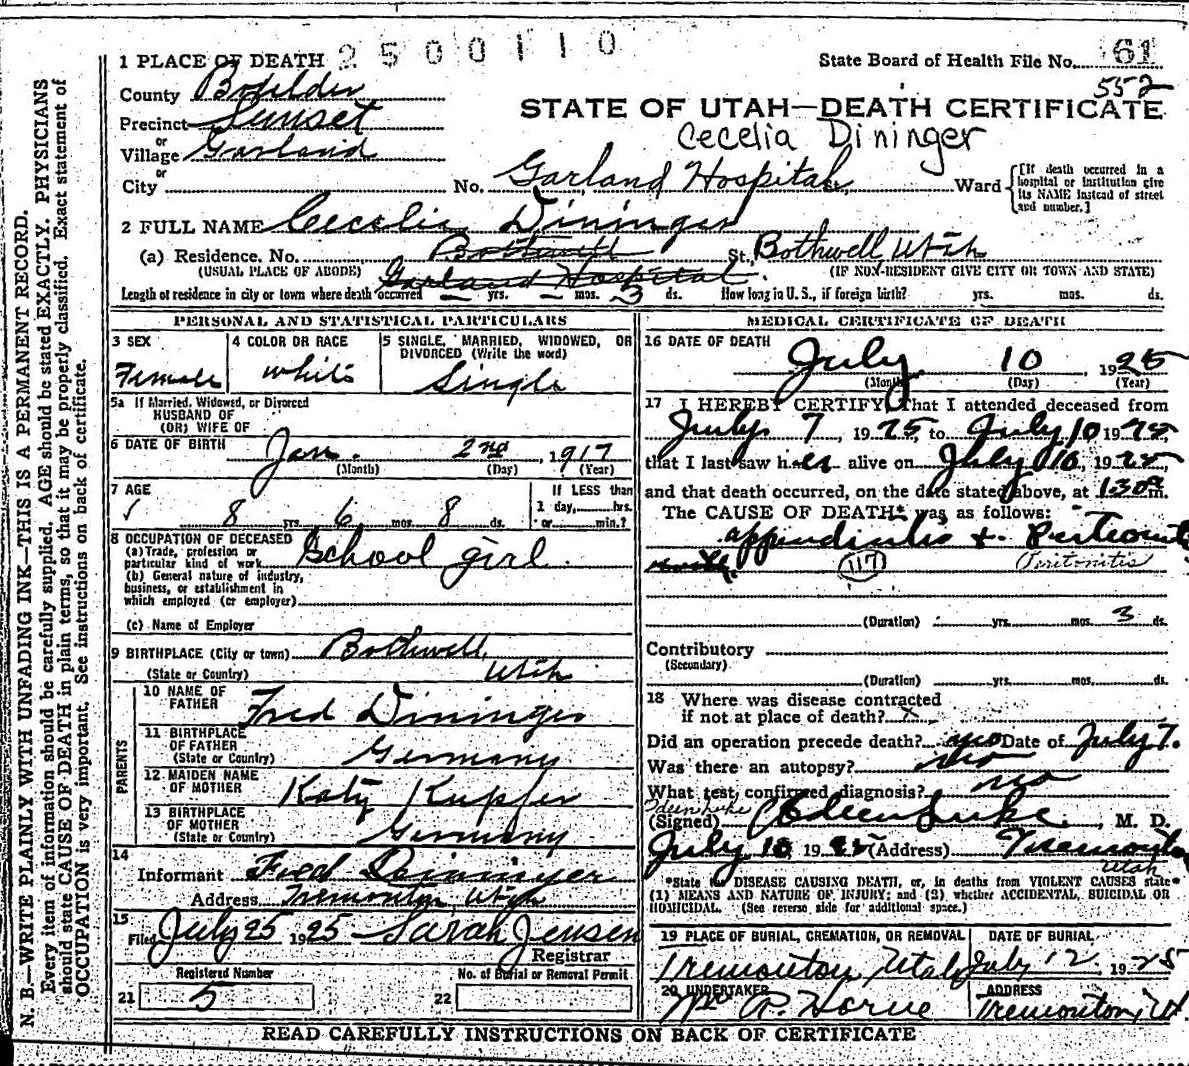 1 PLACE OF DEATH 2500110 State Board of Health File No. 61
552
County Boxelder
STATE OF UTAH—DEATH CERTIFICATE
Precinct Sunset
Cecelia Dininger
or
Village Garland
or
City No. Garland Hospital St. Ward
[If death occurred in a hospital or institution give its NAME instead of street and number.]
2 FULL NAME Cecelia Dininger
(a) Residence. No. Bothwell St., Bothwell Utah
(USUAL PLACE OF ABODE) Garland Hospital (IF NON-RESIDENT GIVE CITY OR TOWN AND STATE)
Length of residence in city or town where death occurred — yrs. — mos. 3 ds. How long in U. S., if foreign birth? yrs. mos. ds.
PERSONAL AND STATISTICAL PARTICULARS
3 SEX
Female
4 COLOR OR RACE
White
5 SINGLE, MARRIED, WIDOWED, OR
DIVORCED (Write the word)
Single
5a If Married, Widowed, or Divorced
HUSBAND OF
(OR) WIFE OF
6 DATE OF BIRTH Jan. 2nd, 1917
(Month) (Day) (Year)
7 AGE
8 yrs. 6 mos. 8 ds.
If LESS than
1 day, hrs.
or min.?
8 OCCUPATION OF DECEASED
(a) Trade, profession or
particular kind of work School girl
(b) General nature of industry,
business, or establishment in
which employed (or employer)
(c) Name of Employer
9 BIRTHPLACE (City or town) Bothwell
(State or Country) Utah
PARENTS
10 NAME OF
FATHER Fred Dininger
11 BIRTHPLACE
OF FATHER
(State or Country) Germany
12 MAIDEN NAME
OF MOTHER Katy Kupfer
13 BIRTHPLACE
OF MOTHER
(State or Country) Germany
14
Informant Fred Dininger
Address Tremonton, Utah
15
Filed July 25 1925 Sarah Jensen
Registrar
Registered Number
21 5
No. of Burial or Removal Permit
22
MEDICAL CERTIFICATE OF DEATH
16 DATE OF DEATH
July 10, 1925
(Month) (Day) (Year)
17 I HEREBY CERTIFY, That I attended deceased from
July 7, 1925, to July 10 1925,
that I last saw her alive on July 10, 1925,
and that death occurred, on the date stated above, at 1:30 a m.
The CAUSE OF DEATH* was as follows:
appendicitis +
(117) Peritonitis
(Duration) yrs. mos. 3 ds.
Contributory
(Secondary)
(Duration) yrs. mos. ds.
18 Where was disease contracted
if not at place of death?
Did an operation precede death? yes Date of July 7.
Was there an autopsy? no
What test confirmed diagnosis? no
(Signed) Luke, M. D.
July 10, 1925 (Address) Tremonton
Utah
*State the DISEASE CAUSING DEATH, or, in deaths from VIOLENT CAUSES state
(1) MEANS AND NATURE OF INJURY; and (2) whether ACCIDENTAL, SUICIDAL OR
HOMICIDAL. (See reverse side for additional space.)
19 PLACE OF BURIAL, CREMATION, OR REMOVAL
Tremonton, Utah
DATE OF BURIAL
July 12, 1925
20 UNDERTAKER
ADDRESS
Tremonton, Ut.
READ CAREFULLY INSTRUCTIONS ON BACK OF CERTIFICATE
N. B.—WRITE PLAINLY WITH UNFADING INK—THIS IS A PERMANENT RECORD.
Every item of information should be carefully supplied. AGE should be stated EXACTLY. PHYSICIANS
should state CAUSE OF DEATH in plain terms, so that it may be properly classified. Exact statement of
OCCUPATION is very important. See instructions on back of certificate.